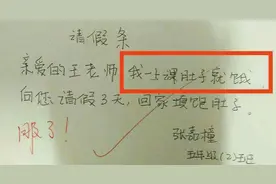 请假条
亲爱的王老师,我一上课肚子就饿,
向您请假3天,回家填饱肚子。
服了!
张嘉橦
五年级(2)五日